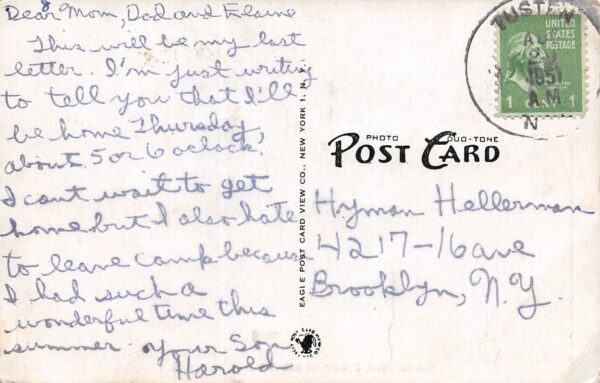 8
Dear Mom, Dad and Elaine
This will be my last
letter. I'm just writing
to tell you that I'll
be home Thursday,
about 5 or 6 oclock.
I cant wait to get
home but I also hate
to leave camp because
I had such a
wonderful time this
summer. Your Son
Harold
EAGLE POST CARD VIEW CO., NEW YORK 1, N. Y.
TUSTEN
1951
A.M.
N
UNITED
STATES
POSTAGE
1 1
PHOTO DUO-TONE
POST CARD
Hyman Hellerman
4217-16 ave
Brooklyn, N.Y.